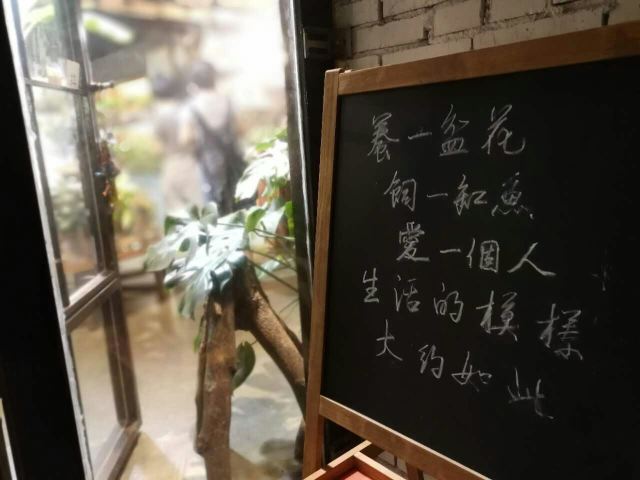 養一盆花
飼一缸魚
愛一個人
生活的模樣
大約如此